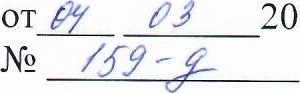 от 04 03 20
№ 159-д